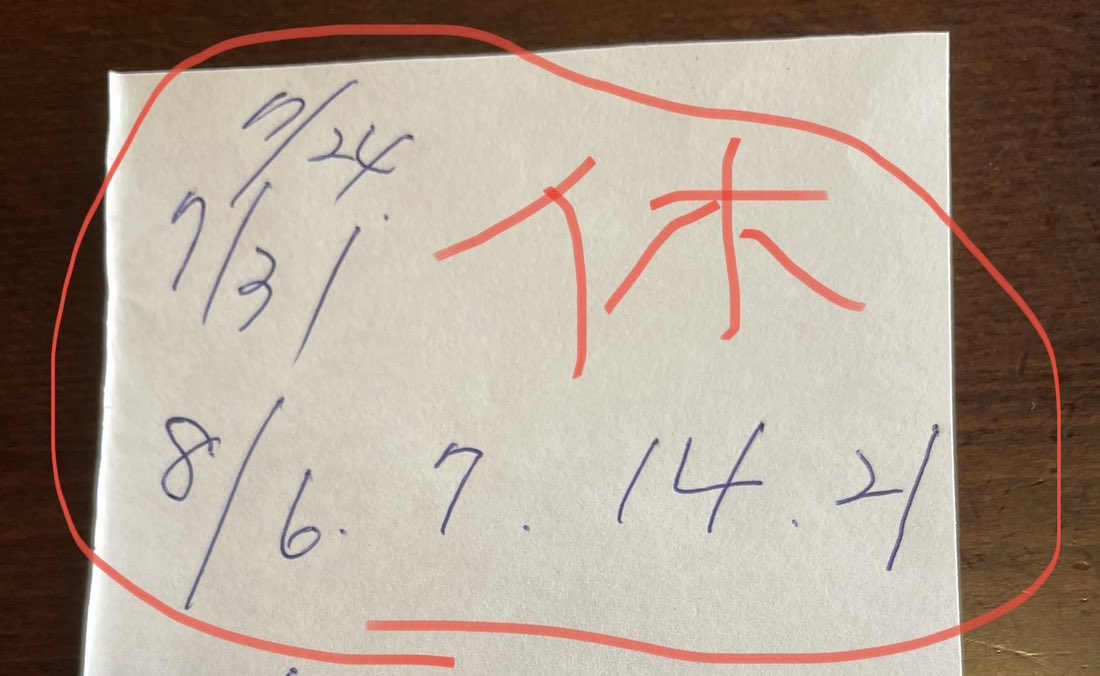 7/24.
7/31
休
8/6. 7. 14. 21